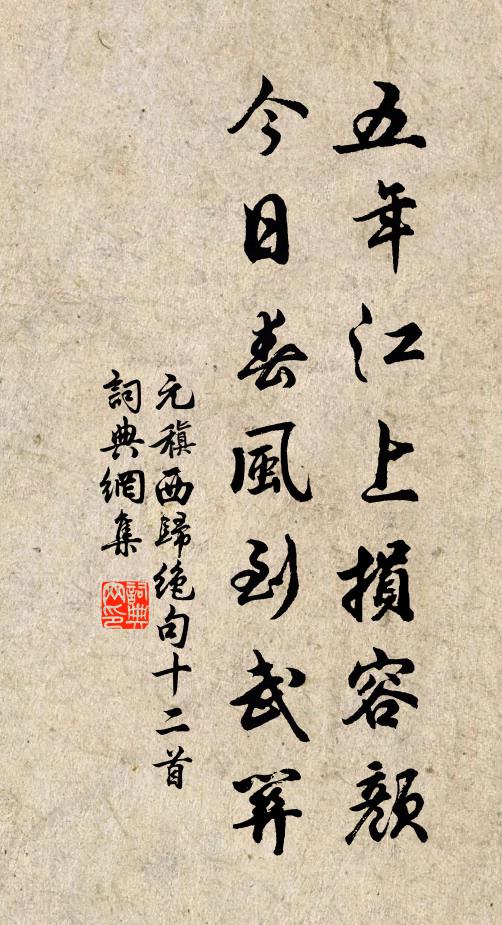 五年江上損容顔
今日春風到武關
元稹西歸絶句十二首
詞典網集
詞典
网印